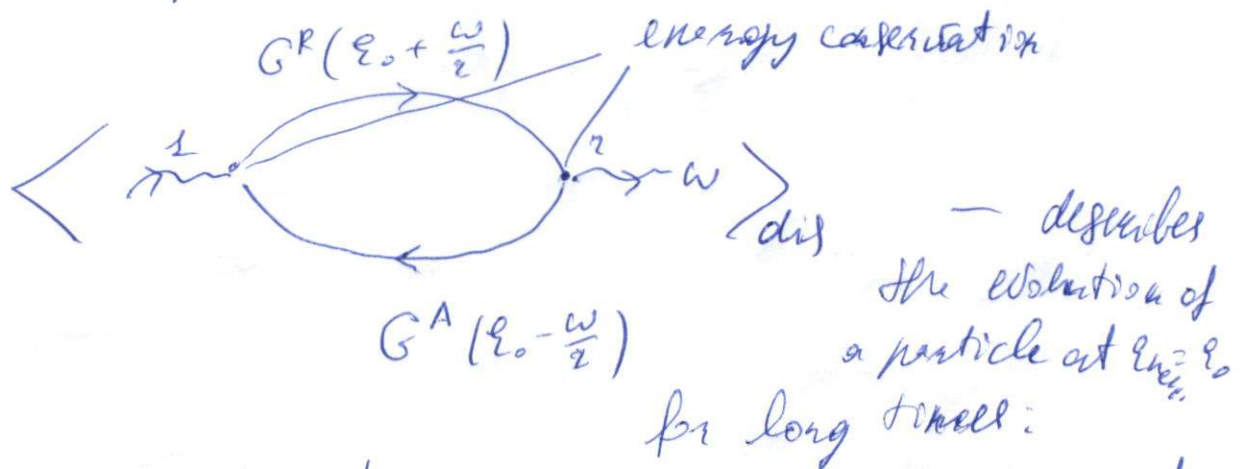 G^R(ε₀ + ω/2)
energy conservation
1
2
ω
dis
— describes
the evolution of
G^A(ε₀ - ω/2)
a particle at ε = ε₀
for long times: